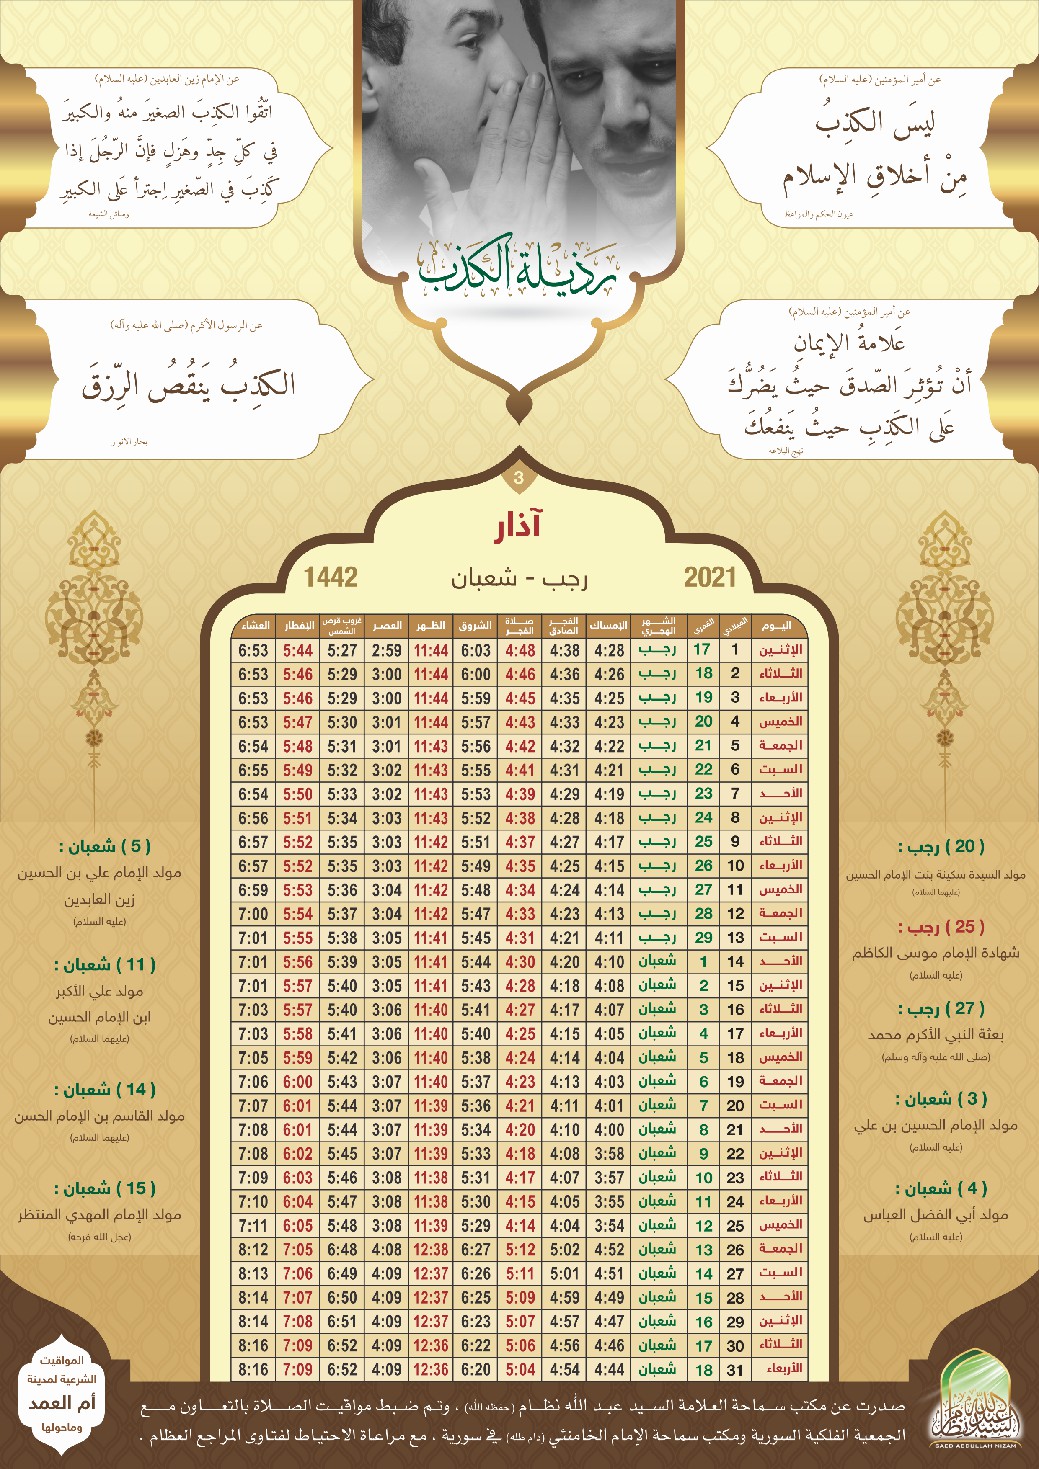 عن أمير المؤمنين (عليه السلام)
ليسَ الكذِبُ
مِنْ أخلاقِ الإسلام
عيون الحكم والمواعظ
عن الإمام زين العابدين (عليه السلام)
اتّقُوا الكذِبَ الصغيرَ منهُ والكبيرَ
في كلِّ جِدٍّ وهَزلٍ فإنَّ الرّجُلَ إذا
كَذِبَ في الصّغيرِ اِجترأ عَلى الكبيرِ
وسائل الشيعة
رذيلة الكذب
عن أمير المؤمنين (عليه السلام)
عَلامةُ الإيمانِ
أنْ تُؤثِرَ الصّدقَ حيثُ يَضُرُّكَ
عَلى الكَذِبِ حيثُ يَنفعُكَ
نهج البلاغة
عن الرسول الأكرم (صلى الله عليه وآله)
الكذِبُ يَنقُصُ الرِّزقَ
بحار الأنوار
3
آذار
2021 رجب - شعبان 1442
اليوم الميلادي القمري الشهر الهجري الإمساك الفجر الصادق صلاة الفجر الشروق الظهر العصر غروب قرص الشمس الإفطار العشاء
الإثنين 1 17 رجب 4:28 4:38 4:48 6:03 11:44 2:59 5:27 5:44 6:53
الثلاثاء 2 18 رجب 4:26 4:36 4:46 6:00 11:44 3:00 5:29 5:46 6:53
الأربعاء 3 19 رجب 4:25 4:35 4:45 5:59 11:44 3:00 5:29 5:46 6:53
الخميس 4 20 رجب 4:23 4:33 4:43 5:57 11:44 3:01 5:30 5:47 6:53
الجمعة 5 21 رجب 4:22 4:32 4:42 5:56 11:43 3:01 5:31 5:48 6:54
السبت 6 22 رجب 4:21 4:31 4:41 5:55 11:43 3:02 5:32 5:49 6:55
الأحد 7 23 رجب 4:19 4:29 4:39 5:53 11:43 3:02 5:33 5:50 6:54
الإثنين 8 24 رجب 4:18 4:28 4:38 5:52 11:43 3:03 5:34 5:51 6:56
الثلاثاء 9 25 رجب 4:17 4:27 4:37 5:51 11:42 3:03 5:35 5:52 6:57
الأربعاء 10 26 رجب 4:15 4:25 4:35 5:49 11:42 3:03 5:35 5:52 6:57
الخميس 11 27 رجب 4:14 4:24 4:34 5:48 11:42 3:04 5:36 5:53 6:59
الجمعة 12 28 رجب 4:13 4:23 4:33 5:47 11:42 3:04 5:37 5:54 7:00
السبت 13 29 رجب 4:11 4:21 4:31 5:45 11:41 3:05 5:38 5:55 7:01
الأحد 14 1 شعبان 4:10 4:20 4:30 5:44 11:41 3:05 5:39 5:56 7:01
الإثنين 15 2 شعبان 4:08 4:18 4:28 5:43 11:41 3:05 5:40 5:57 7:01
الثلاثاء 16 3 شعبان 4:07 4:17 4:27 5:41 11:40 3:06 5:40 5:57 7:03
الأربعاء 17 4 شعبان 4:05 4:15 4:25 5:40 11:40 3:06 5:41 5:58 7:03
الخميس 18 5 شعبان 4:04 4:14 4:24 5:38 11:40 3:06 5:42 5:59 7:05
الجمعة 19 6 شعبان 4:03 4:13 4:23 5:37 11:40 3:07 5:43 6:00 7:06
السبت 20 7 شعبان 4:01 4:11 4:21 5:36 11:39 3:07 5:44 6:01 7:07
الأحد 21 8 شعبان 4:00 4:10 4:20 5:34 11:39 3:07 5:44 6:01 7:08
الإثنين 22 9 شعبان 3:58 4:08 4:18 5:33 11:39 3:07 5:45 6:02 7:08
الثلاثاء 23 10 شعبان 3:57 4:07 4:17 5:31 11:38 3:08 5:46 6:03 7:09
الأربعاء 24 11 شعبان 3:55 4:05 4:15 5:30 11:38 3:08 5:47 6:04 7:10
الخميس 25 12 شعبان 3:54 4:04 4:14 5:29 11:39 3:08 5:48 6:05 7:11
الجمعة 26 13 شعبان 4:52 5:02 5:12 6:27 12:38 4:08 6:48 7:05 8:12
السبت 27 14 شعبان 4:51 5:01 5:11 6:26 12:37 4:09 6:49 7:06 8:13
الأحد 28 15 شعبان 4:49 4:59 5:09 6:25 12:37 4:09 6:50 7:07 8:14
الإثنين 29 16 شعبان 4:47 4:57 5:07 6:23 12:37 4:09 6:51 7:08 8:14
الثلاثاء 30 17 شعبان 4:46 4:56 5:06 6:22 12:36 4:09 6:52 7:09 8:16
الأربعاء 31 18 شعبان 4:44 4:54 5:04 6:20 12:36 4:09 6:52 7:09 8:16
( 20 ) رجب :
مولد السيدة سكينة بنت الإمام الحسين
(عليهما السلام)
( 25 ) رجب :
شهادة الإمام موسى الكاظم
(عليه السلام)
( 27 ) رجب :
بعثة النبي الأكرم محمد
(صلى الله عليه وآله وسلم)
( 3 ) شعبان :
مولد الإمام الحسين بن علي
(عليه السلام)
( 4 ) شعبان :
مولد أبي الفضل العباس
(عليه السلام)
( 5 ) شعبان :
مولد الإمام علي بن الحسين
زين العابدين
(عليه السلام)
( 11 ) شعبان :
مولد علي الأكبر
ابن الإمام الحسين
(عليهما السلام)
( 14 ) شعبان :
مولد القاسم بن الإمام الحسن
(عليهما السلام)
( 15 ) شعبان :
مولد الإمام المهدي المنتظر
(عجل الله فرجه)
المواقيت
الشرعية لمدينة
أم العمد
وماحولها
صدرت عن مكتب سماحة العلامة السيد عبد الله نظام (حفظه الله) ، وتم ضبط مواقيت الصلاة بالتعاون مع
الجمعية الفلكية السورية ومكتب سماحة الإمام الخامنئي (دام ظله) في سورية ، مع مراعاة الاحتياط لفتاوى المراجع العظام .
SAED ABDULLAH NIZAM